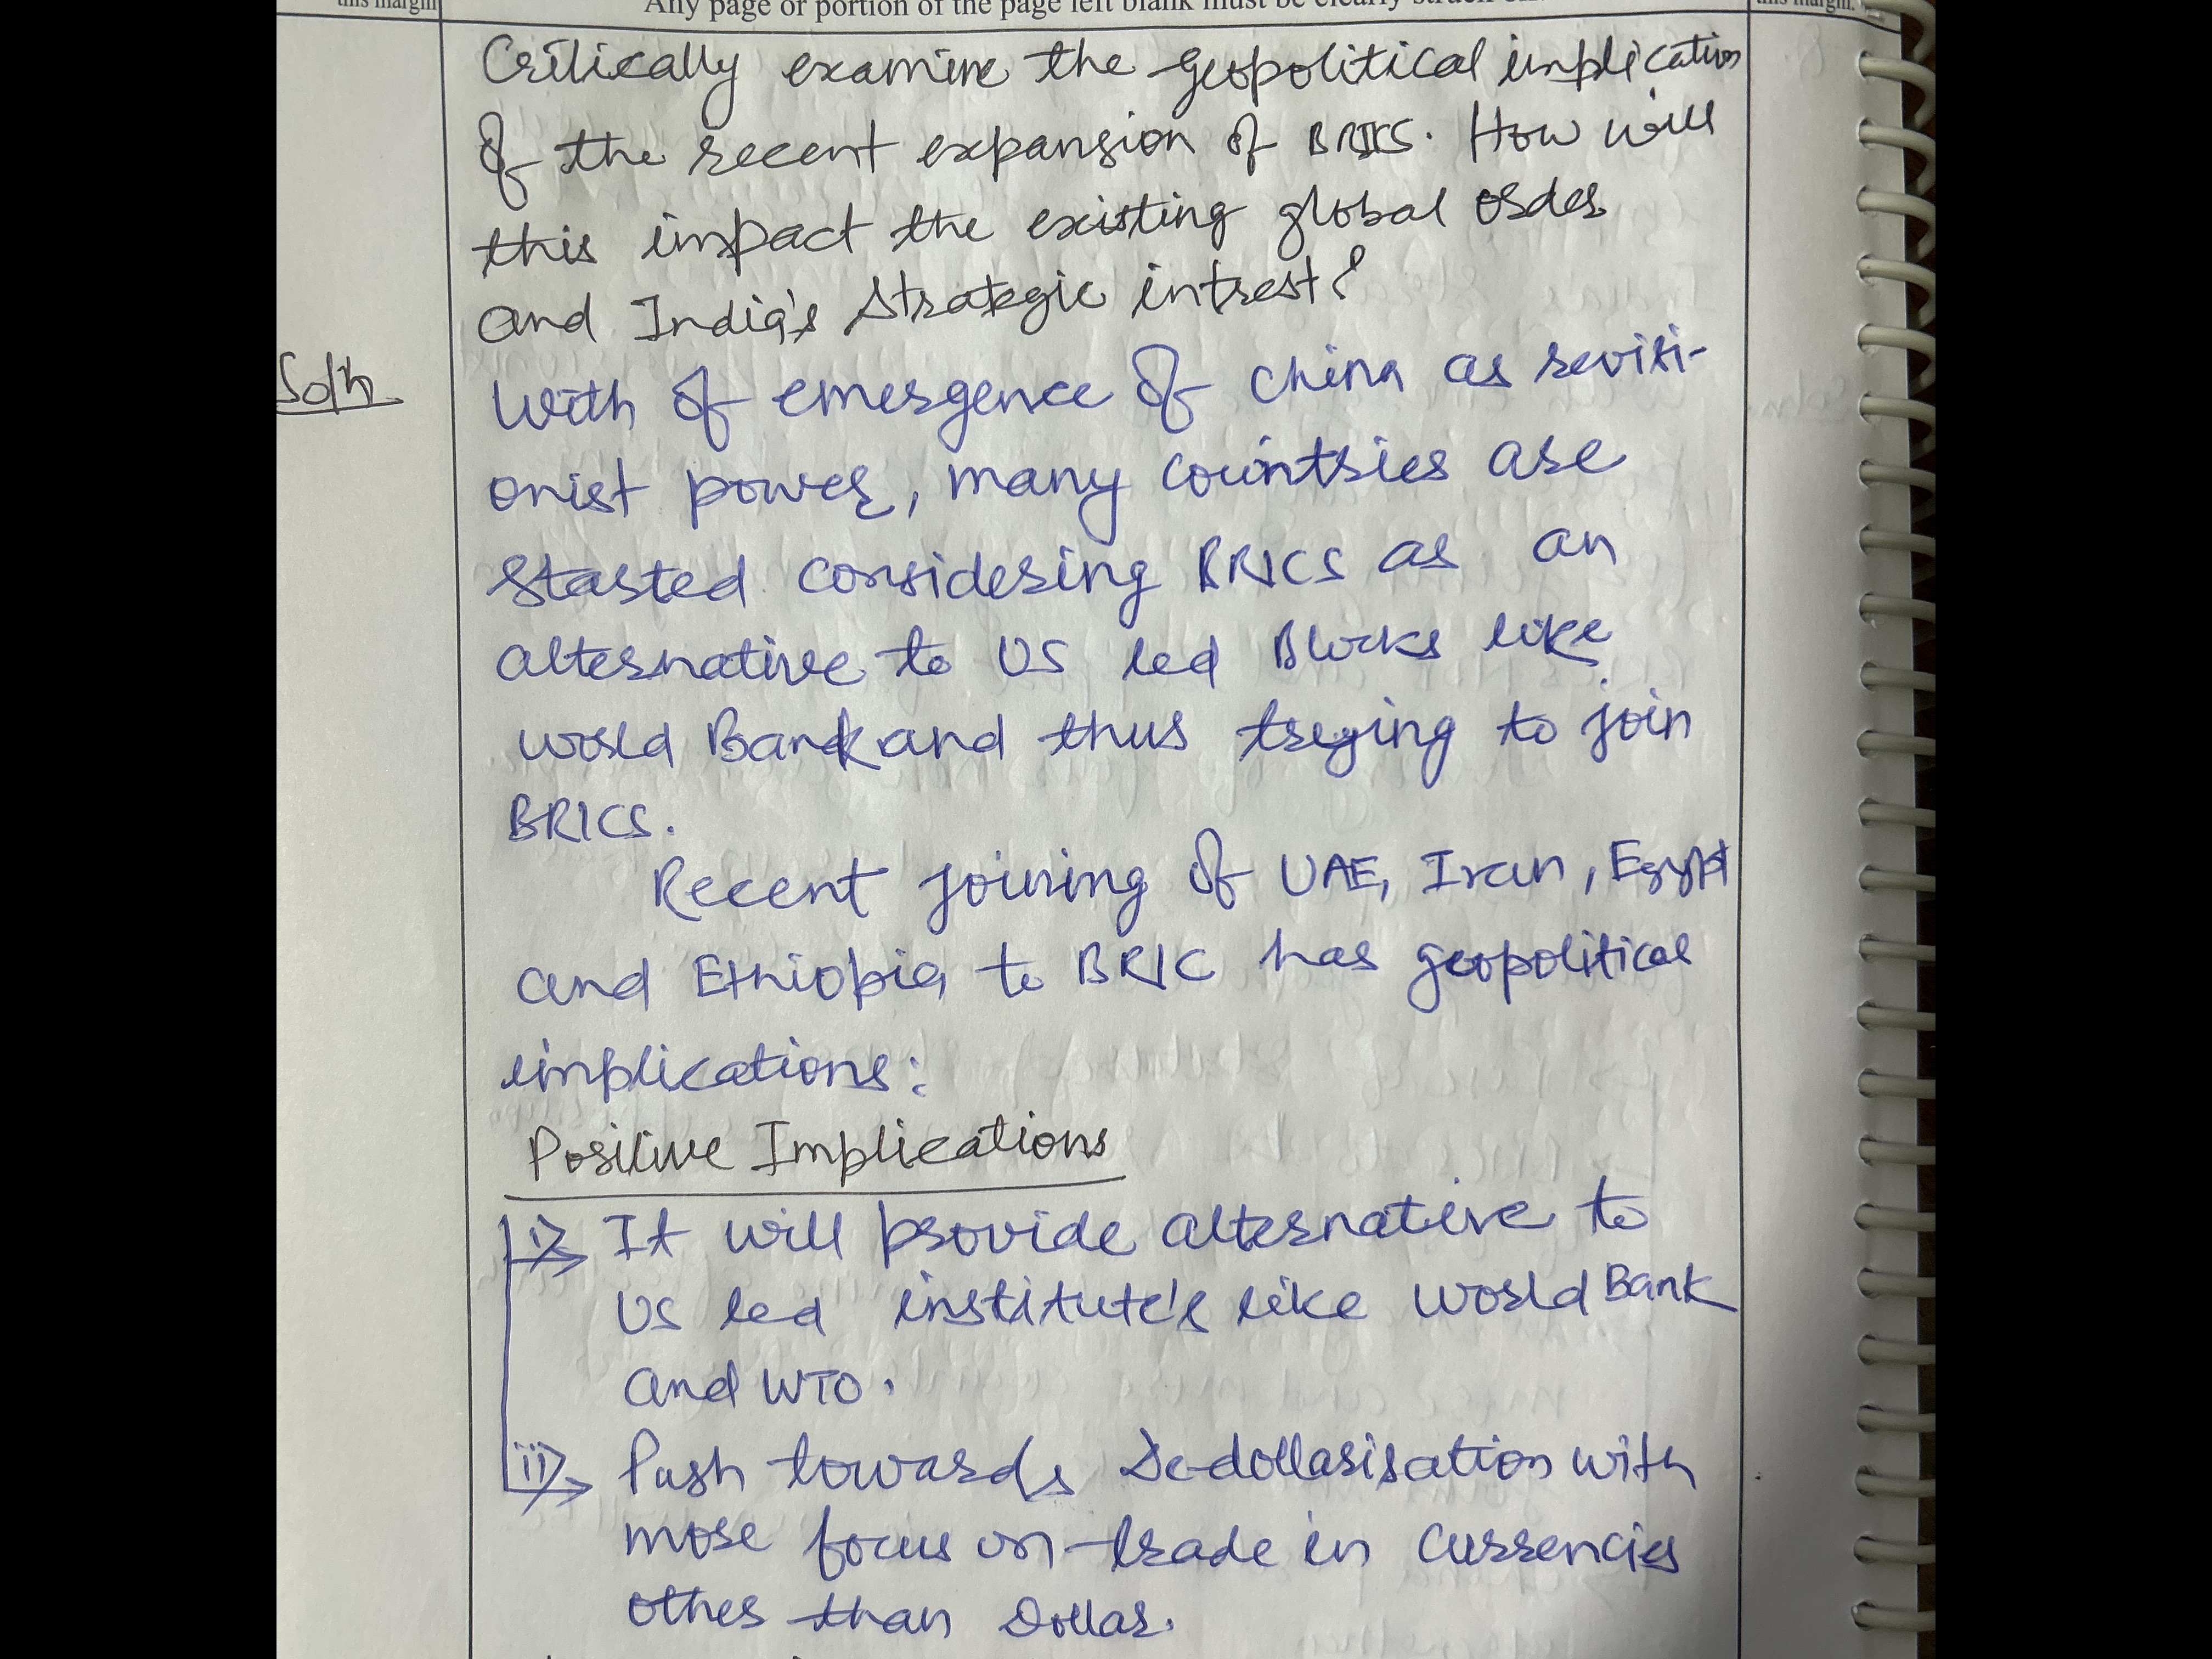 this margin
Any page or portion of the page left blank must be clearly struck
this margin.
Critically examine the geopolitical implication
of the recent expansion of BRICS. How will
this impact the existing global order
and India's Strategic intrest?
Soln
With of emergence of China as reviti-
onist power, many countries are
started considering BRICS as an
alternative to US led Blocks like
world Bank and thus treying to join
BRICS.
Recent joining of UAE, Iran, Egypt
and Ethiopia to BRIC has geopolitical
implications:
Positive Implications
i) It will provide alternative to
US led institute's like World Bank
and WTO.
ii) Push towards De-dollarisation with
more focus on trade in currencies
other than Dollar.